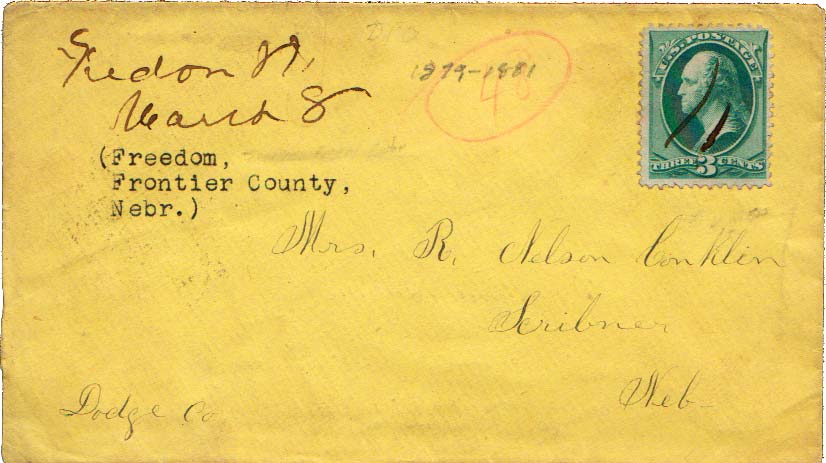 Fredom N.
March 8
(Freedom,
Frontier County,
Nebr.)
DPO
1879-1881
48
U.S. POSTAGE
THREE 3 CENTS
Mrs. R. Nelson Conklin
Scribner
Neb-
Dodge Co